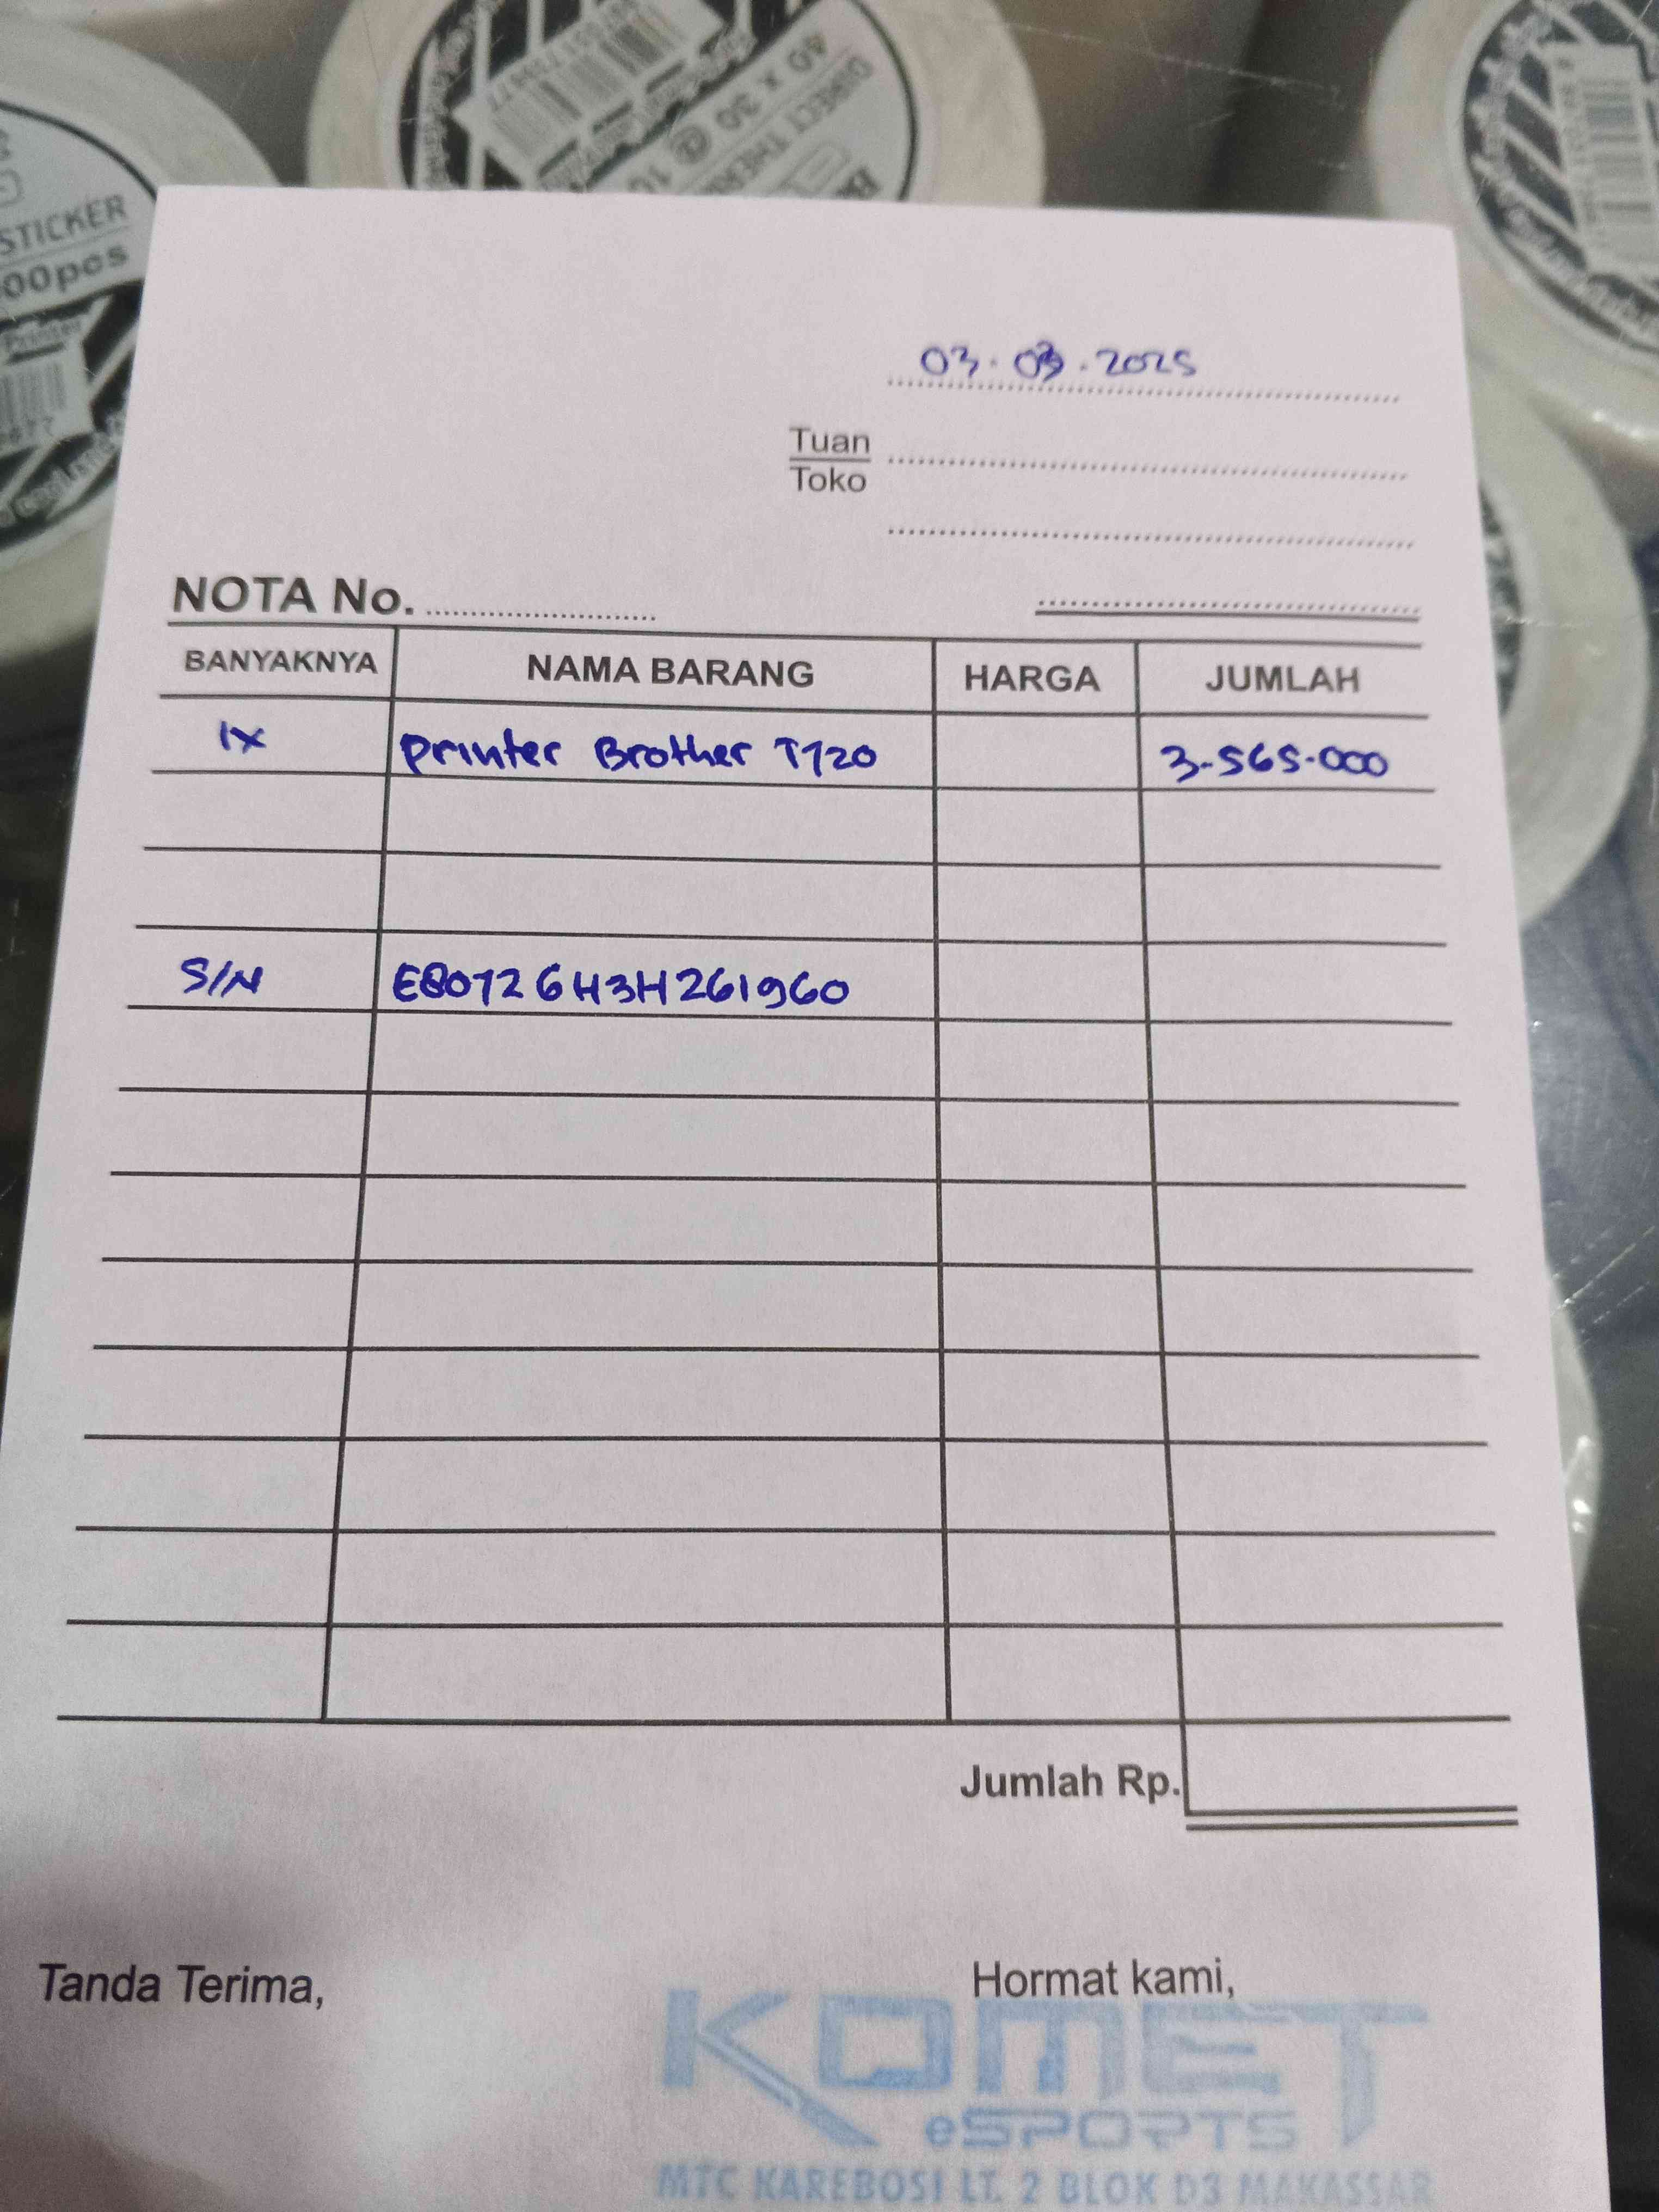 STICKER
00pcs
Printer
DIRECT THERM
40 x 30 @ 10
03.03.2025
Tuan
Toko
NOTA No.
BANYAKNYA NAMA BARANG HARGA JUMLAH
1x Printer Brother T720 3.565.000
S/N E80726H3H261960
Jumlah Rp.
Tanda Terima, Hormat kami,
KOMET
eSPORTS
MTC KAREBOSI LT. 2 BLOK D3 MAKASSAR